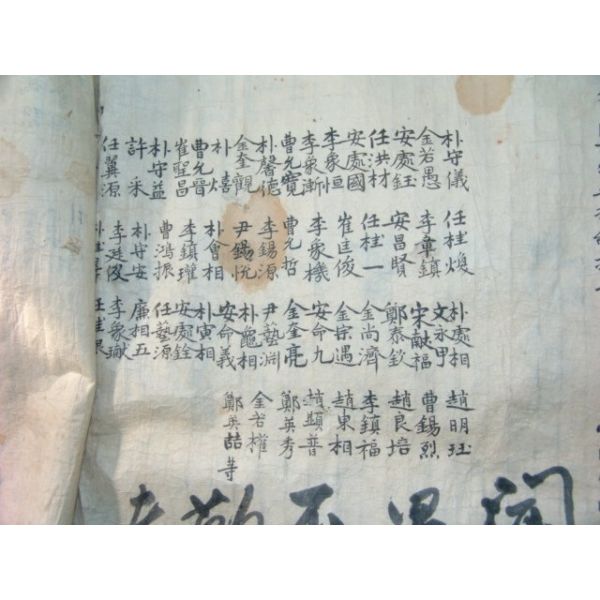 朴守儀
金若愚
安處鈺
任洪材
安處國
李象恒
李象漸
曹允寬
朴馨德
金奎觀
朴熺
曹允晉
崔聖昌
朴守益
許采
任翼源
任桂煥
李章鎮
安昌賢
任桂一
崔匡俊
李象機
曹允哲
李錫源
尹錫悅
朴會相
李鎮瓘
曹鴻振
朴守安
李廷俊
朴處相
文永甲
宋獻福
鄭泰欽
金尚濟
金宗遇
安命九
金奎亮
尹藝淵
朴龜相
安命義
朴寅相
安處銓
任藝源
廉相五
李象巘
趙明珏
曹錫烈
趙良培
李鎮福
趙杲相
趙顯普
鄭英秀
金若權
鄭英喆 等